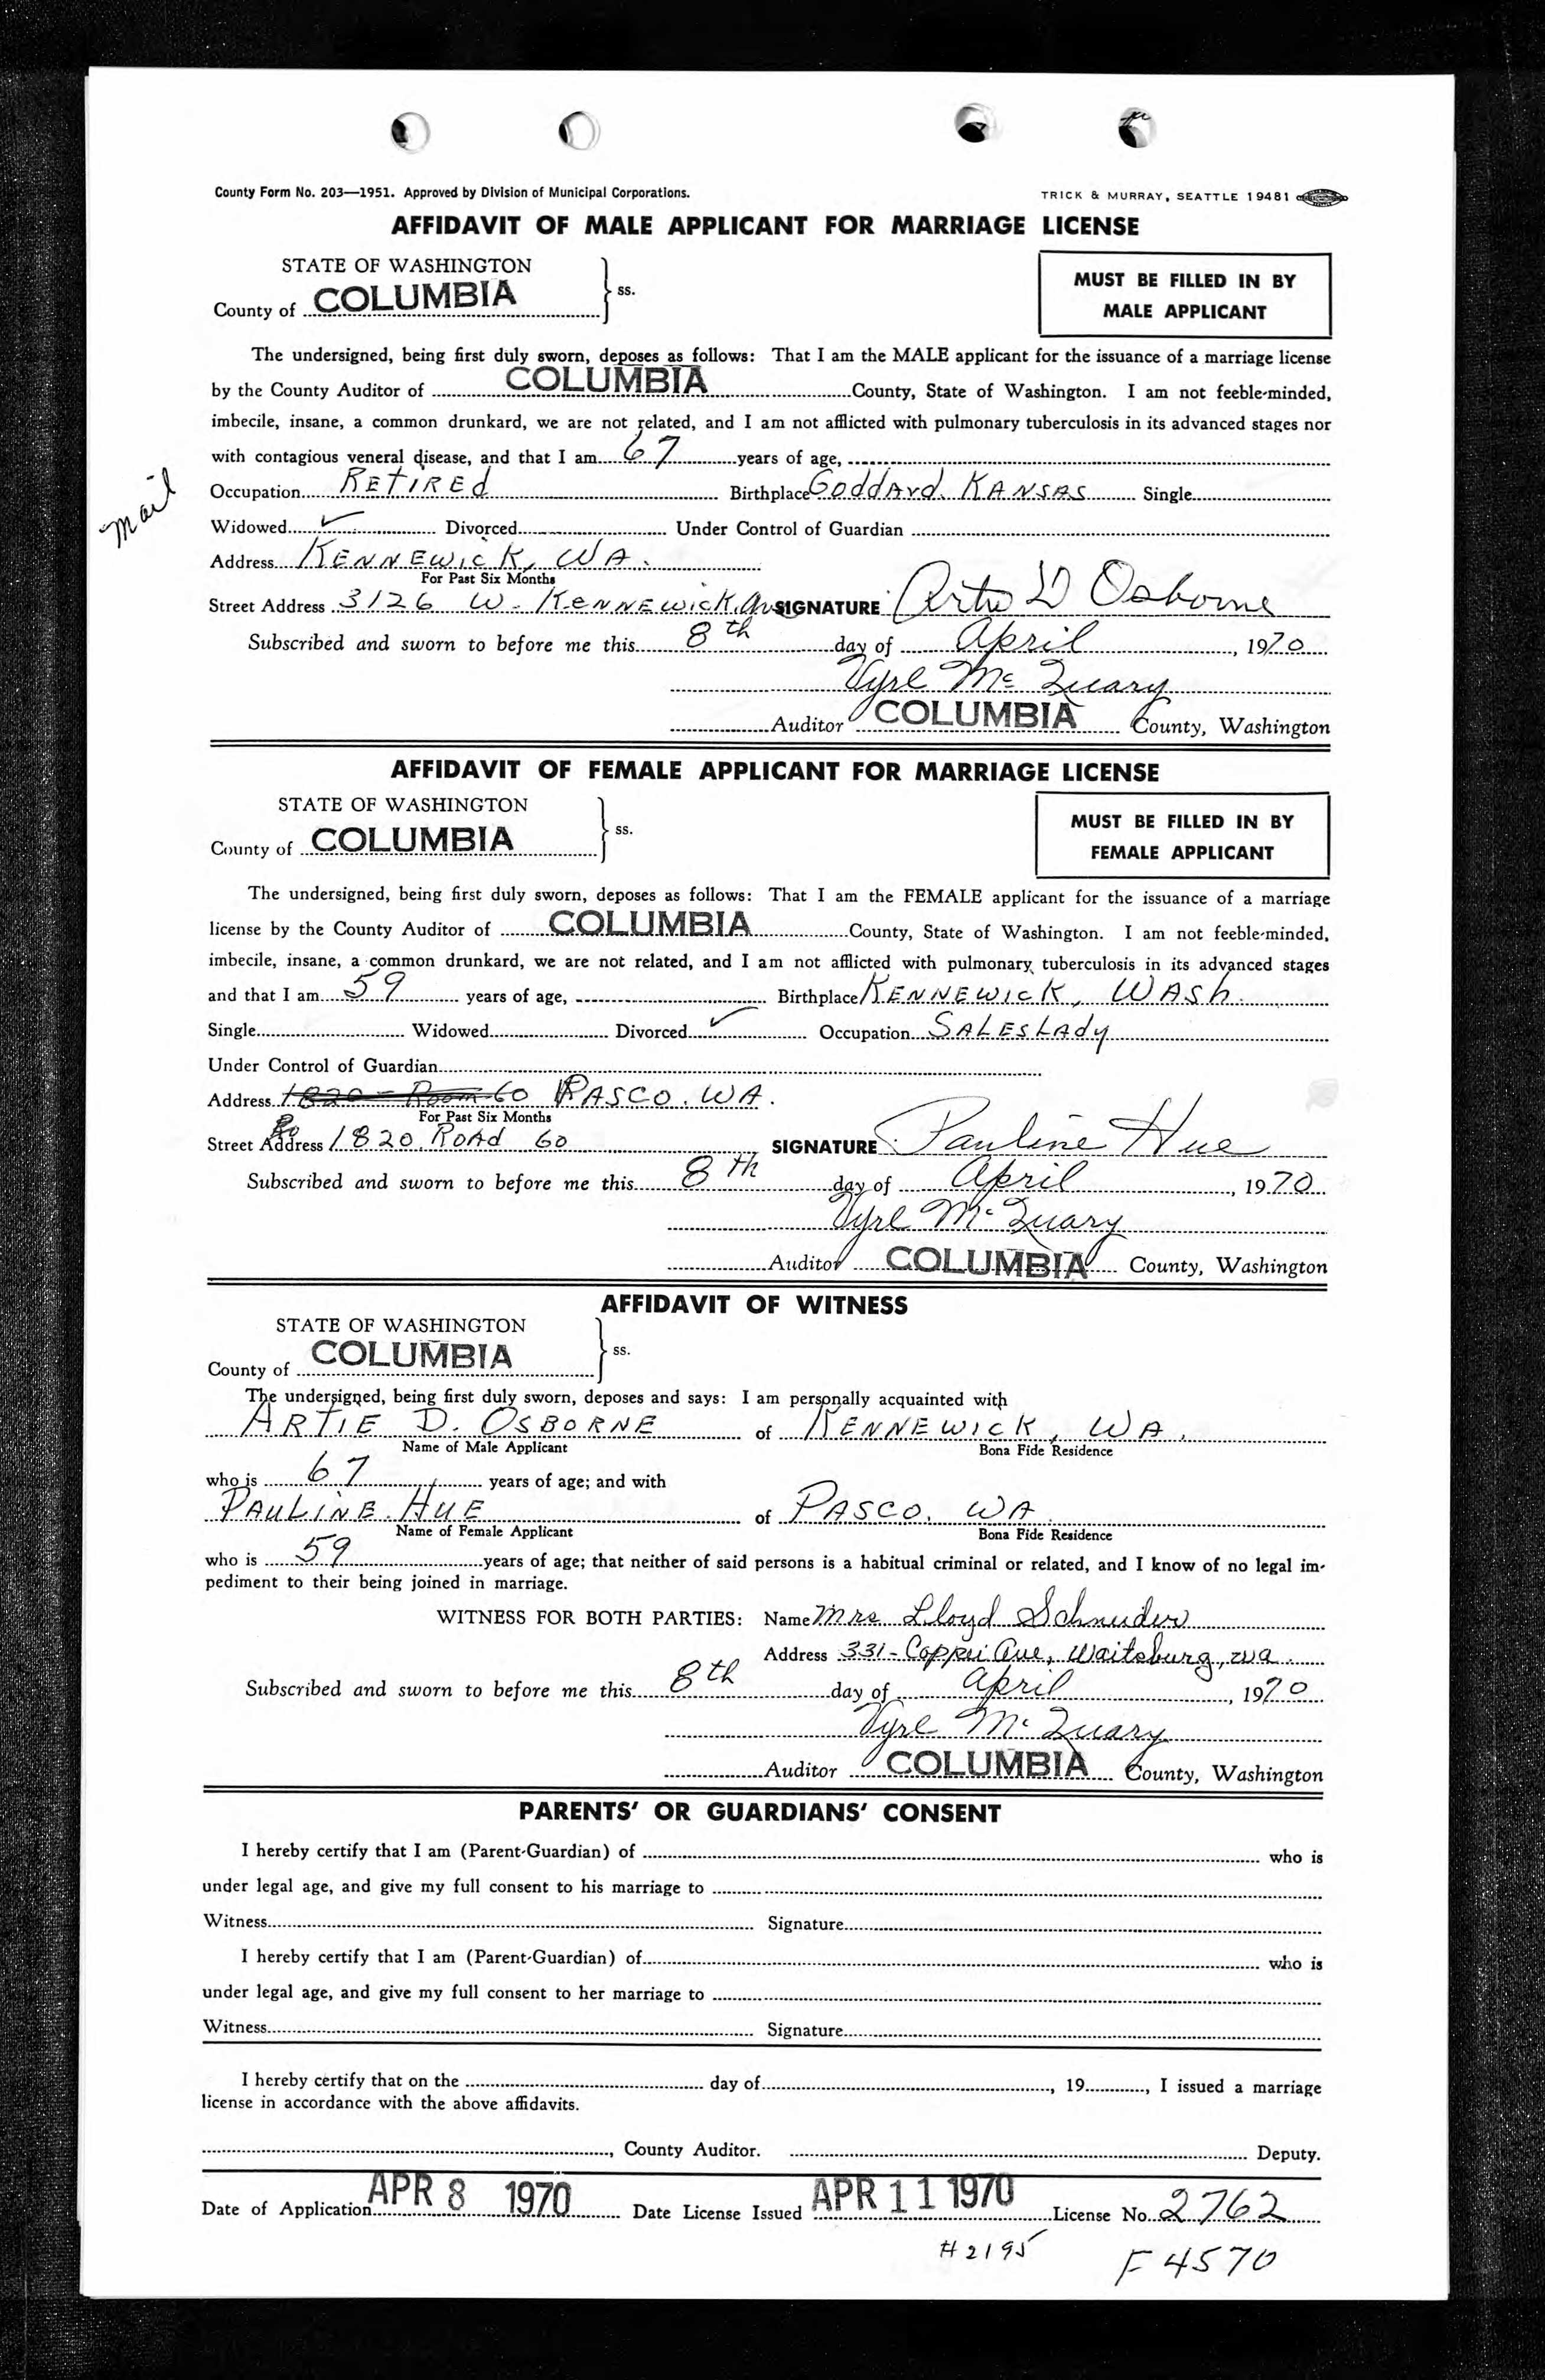 County Form No. 203—1951. Approved by Division of Municipal Corporations. TRICK & MURRAY, SEATTLE 19481
AFFIDAVIT OF MALE APPLICANT FOR MARRIAGE LICENSE
STATE OF WASHINGTON
County of COLUMBIA ss.
MUST BE FILLED IN BY
MALE APPLICANT
The undersigned, being first duly sworn, deposes as follows: That I am the MALE applicant for the issuance of a marriage license
by the County Auditor of COLUMBIA County, State of Washington. I am not feeble-minded,
imbecile, insane, a common drunkard, we are not related, and I am not afflicted with pulmonary tuberculosis in its advanced stages nor
with contagious veneral disease, and that I am 67 years of age,
Mail
Occupation RETIREd Birthplace GoddArd, KANSAS Single
Widowed ✓ Divorced Under Control of Guardian
Address KENNEWICK, WA.
For Past Six Months
Street Address 3126 W. KENNEWICK Av SIGNATURE Artie D Osborne
Subscribed and sworn to before me this 8th day of April, 1970
Vyrl McQuary
Auditor COLUMBIA County, Washington
AFFIDAVIT OF FEMALE APPLICANT FOR MARRIAGE LICENSE
STATE OF WASHINGTON
County of COLUMBIA ss.
MUST BE FILLED IN BY
FEMALE APPLICANT
The undersigned, being first duly sworn, deposes as follows: That I am the FEMALE applicant for the issuance of a marriage
license by the County Auditor of COLUMBIA County, State of Washington. I am not feeble-minded,
imbecile, insane, a common drunkard, we are not related, and I am not afflicted with pulmonary tuberculosis in its advanced stages
and that I am 59 years of age, Birthplace KENNEWICK, WASh.
Single Widowed Divorced ✓ Occupation SALESLAdy
Under Control of Guardian
Address 1820 - Room 60 PASCO, WA.
For Past Six Months
Street Address 1820 ROAd 60 SIGNATURE Pauline Hue
Subscribed and sworn to before me this 8th day of April, 1970
Vyrl McQuary
Auditor COLUMBIA County, Washington
AFFIDAVIT OF WITNESS
STATE OF WASHINGTON
County of COLUMBIA ss.
The undersigned, being first duly sworn, deposes and says: I am personally acquainted with
ARTIE D. OSBORNE of KENNEWICK, WA,
Name of Male Applicant Bona Fide Residence
who is 67 years of age; and with
PAULINE HUE of PASCO, WA
Name of Female Applicant Bona Fide Residence
who is 59 years of age; that neither of said persons is a habitual criminal or related, and I know of no legal im-
pediment to their being joined in marriage.
WITNESS FOR BOTH PARTIES: Name Mrs Lloyd Schneider
Address 331 - Coppei Ave, Waitsburg, wa.
Subscribed and sworn to before me this 8th day of April, 1970
Vyrl McQuary
Auditor COLUMBIA County, Washington
PARENTS' OR GUARDIANS' CONSENT
I hereby certify that I am (Parent-Guardian) of who is
under legal age, and give my full consent to his marriage to
Witness Signature
I hereby certify that I am (Parent-Guardian) of who is
under legal age, and give my full consent to her marriage to
Witness Signature
I hereby certify that on the day of, 19, I issued a marriage
license in accordance with the above affidavits.
, County Auditor. Deputy.
Date of Application APR 8 1970 Date License Issued APR 11 1970 License No. 2762
# 2195 F 4570